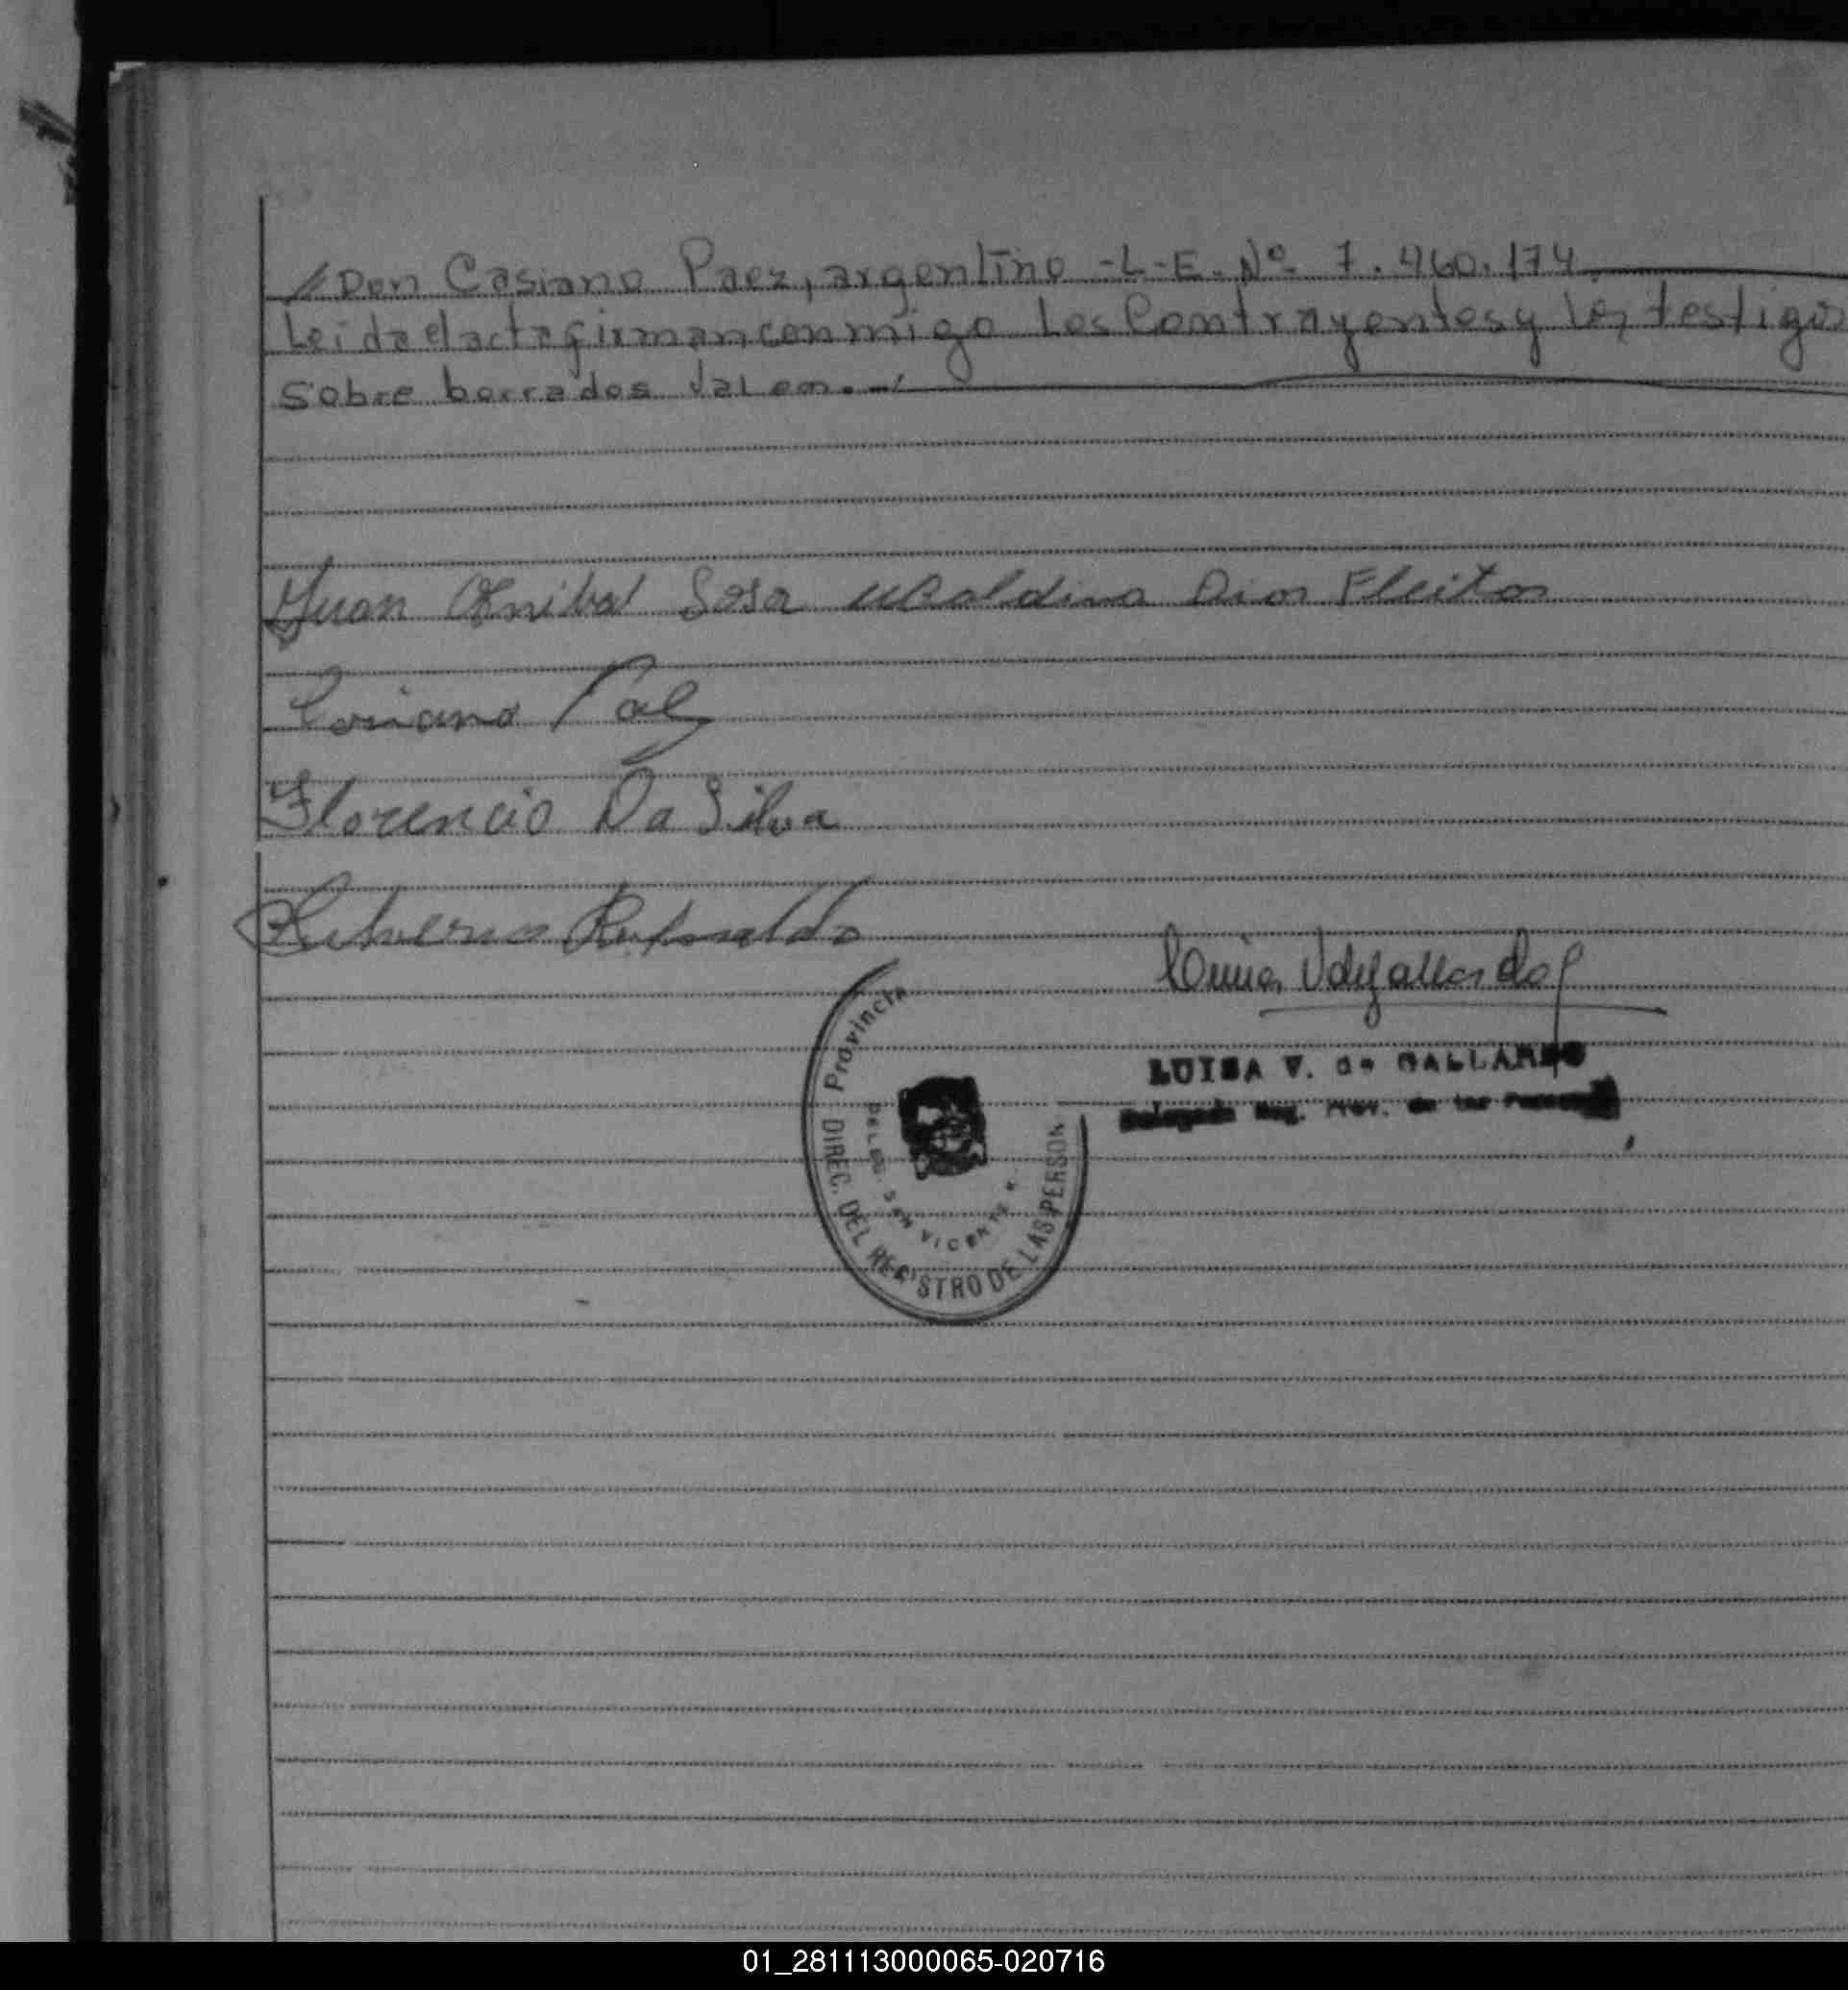 // Don Casiano Paez, argentino -L-E. Nº 7.460.174
Leida el acta firman, conmigo Los Contrayentes y los testigos
Sobre borrados valen.-
Juan Anibal Sosa Ubaldina Dios Fleitas
Casiano Paez
Florencio Da Silva
LUISA V. de GALLARDO
Delegada Reg. Prov. de las
Provincia
DIREC. DEL REGISTRO DE LAS PERSON.
DELEG. SAN VICENTE
01_281113000065-020716